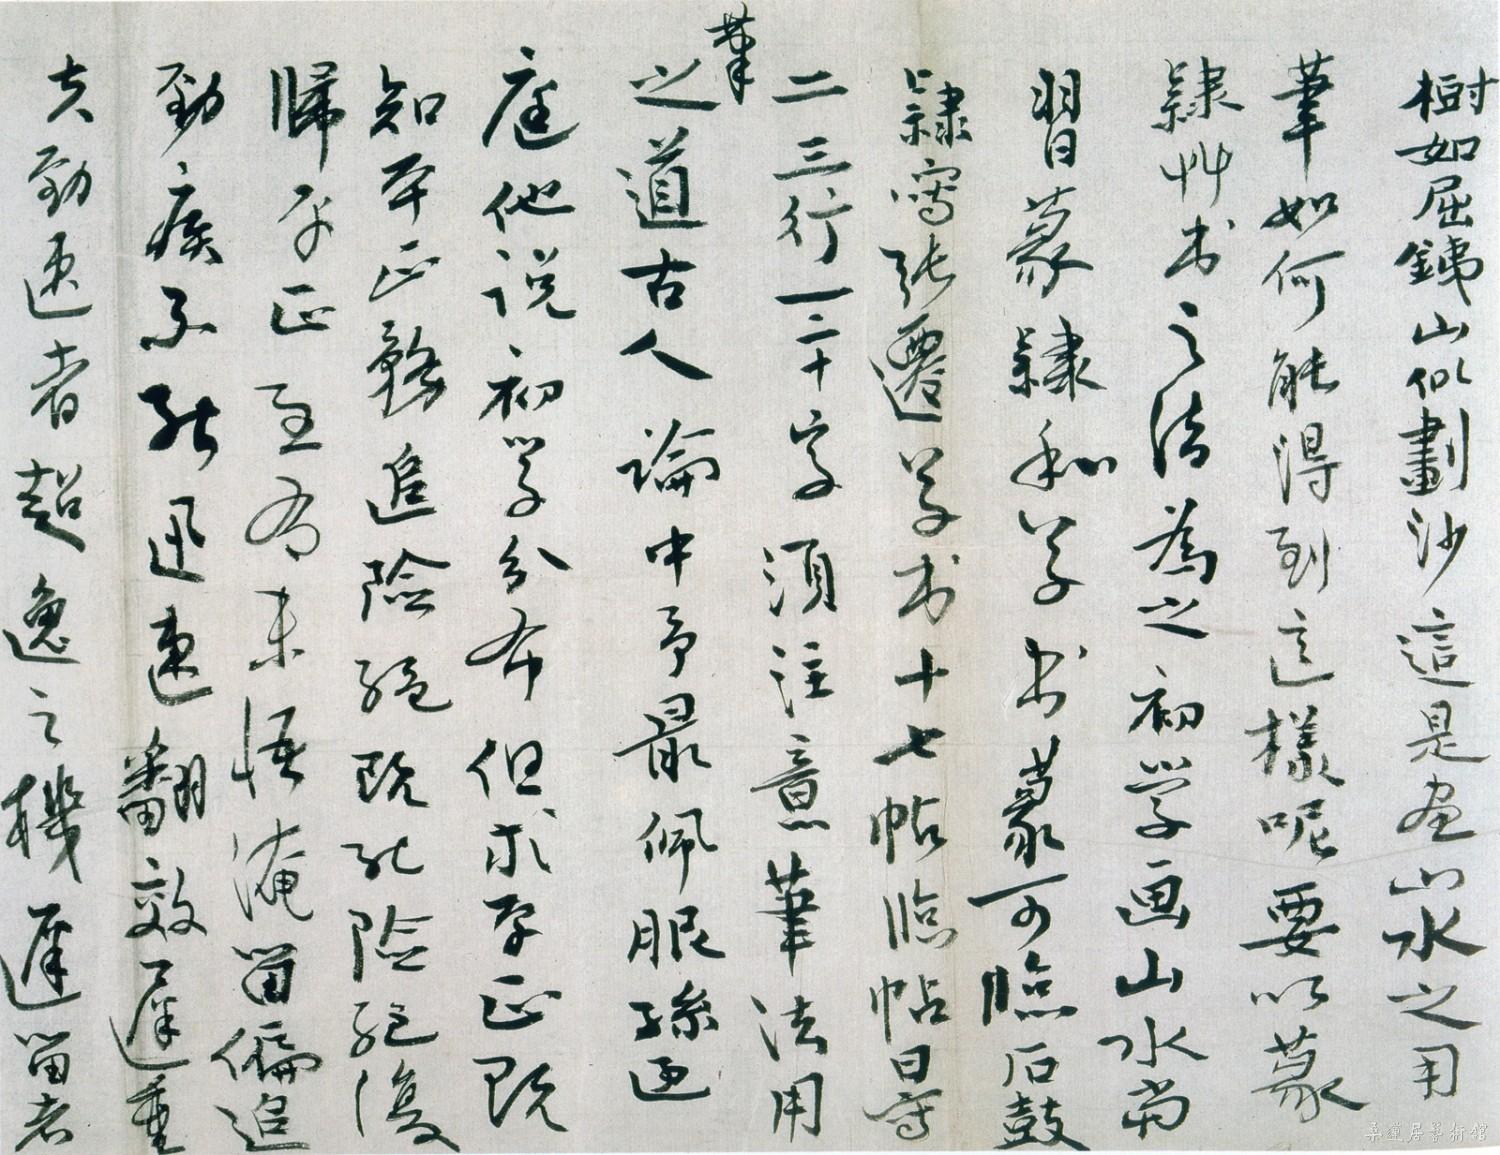 樹如屈鐵山似劃沙這是畫山水之用
筆如何能得到這樣呢要以篆
隸艸书之法為之初学画山水当
習篆隸和学书篆可臨石鼓
隸寫张遷学书十七帖临帖日寫
二三行一二十字須注意筆法用
筆
之道古人論中予最佩服孫过
庭他说初学分布但求平正既
知平正務追險绝既能险绝復
歸平正至为未悟淹留偏追
勁疾不能迅速翻效遲重
夫勁速者超逸之機遲留者
桑蓮居藝術館